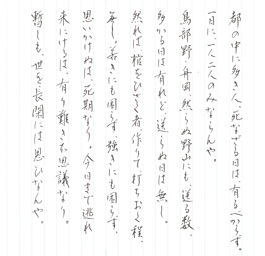 都の中に多き人、死なざる日は有るべからず。
一日に一人二人のみならんや。
鳥部野・舟岡然らぬ野山にも送る数
多かる日は有れど送らぬ日は無し。
然れば棺をひさぐ者作りて打ちおく程
無し。若きにも因らず強きにも因らず。
思いかけぬは死期なり。今日まで逃れ
来にけるは有り難き不思議なり。
暫しも世を長閑には思ひなんや。